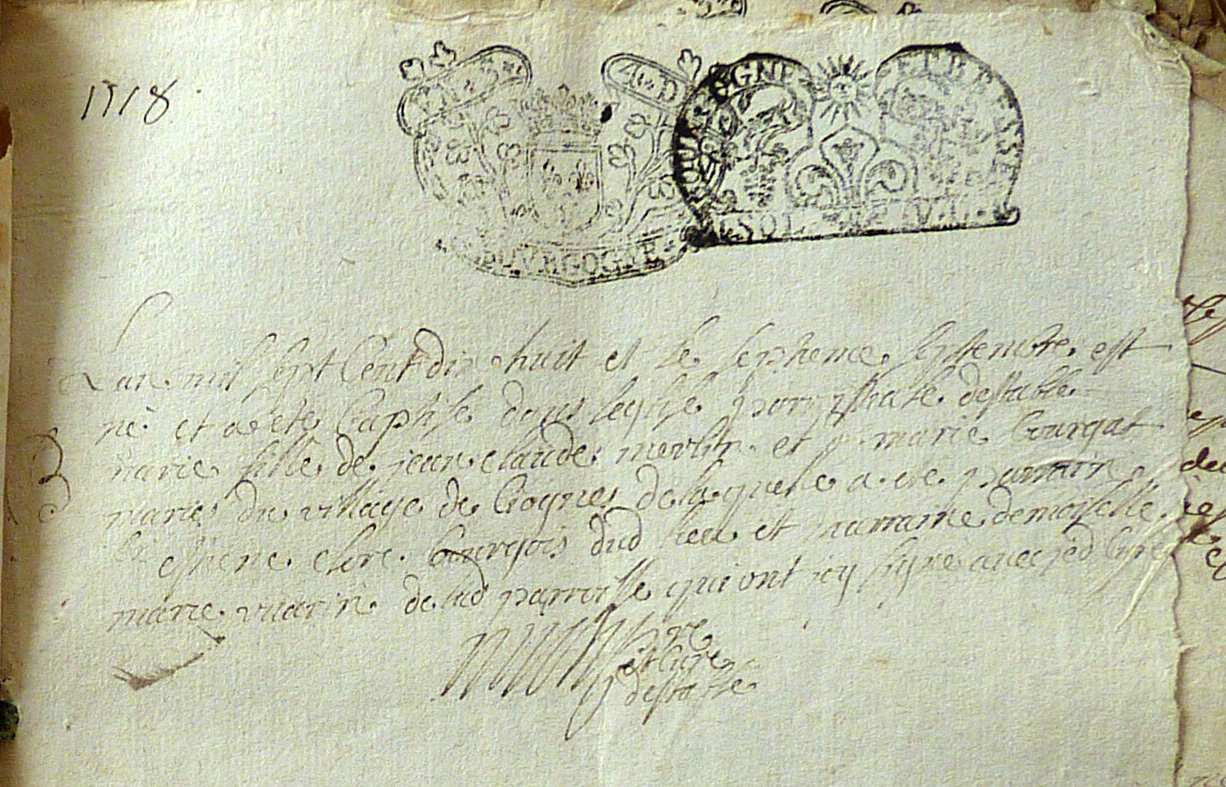 1718
BOURGOGNE ET BRESSE
SOL
BOVRGOGNE
Lan mil sept Cent dix huit et le septieme septembre est
né et a eté baptisé dans leglise parroissiale destable
marie fille de jean claude merlin et marie bourgat
mariés du village de Crognes de laquelle a eté parrain
bourgois dud lieu et marraine demoiselle
marie vuarin de lad parroisse qui ont icy signé avec led Curé
pre
et Curé